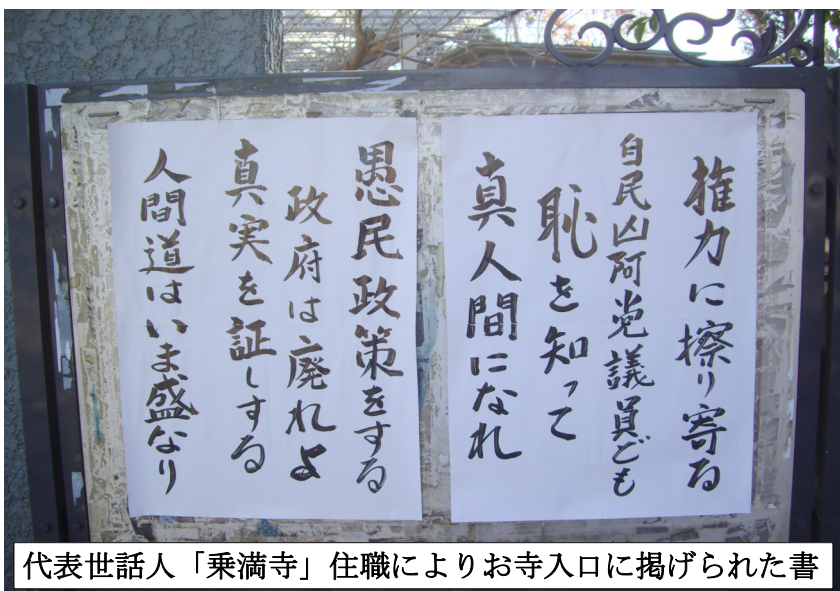 権力に擦り寄る
自民凶阿党議員ども
恥を知って
真人間になれ
愚民政策をする
政府は廃れよ
真実を証しする
人間道はいま盛なり
代表世話人「乗満寺」住職によりお寺入口に掲げられた書